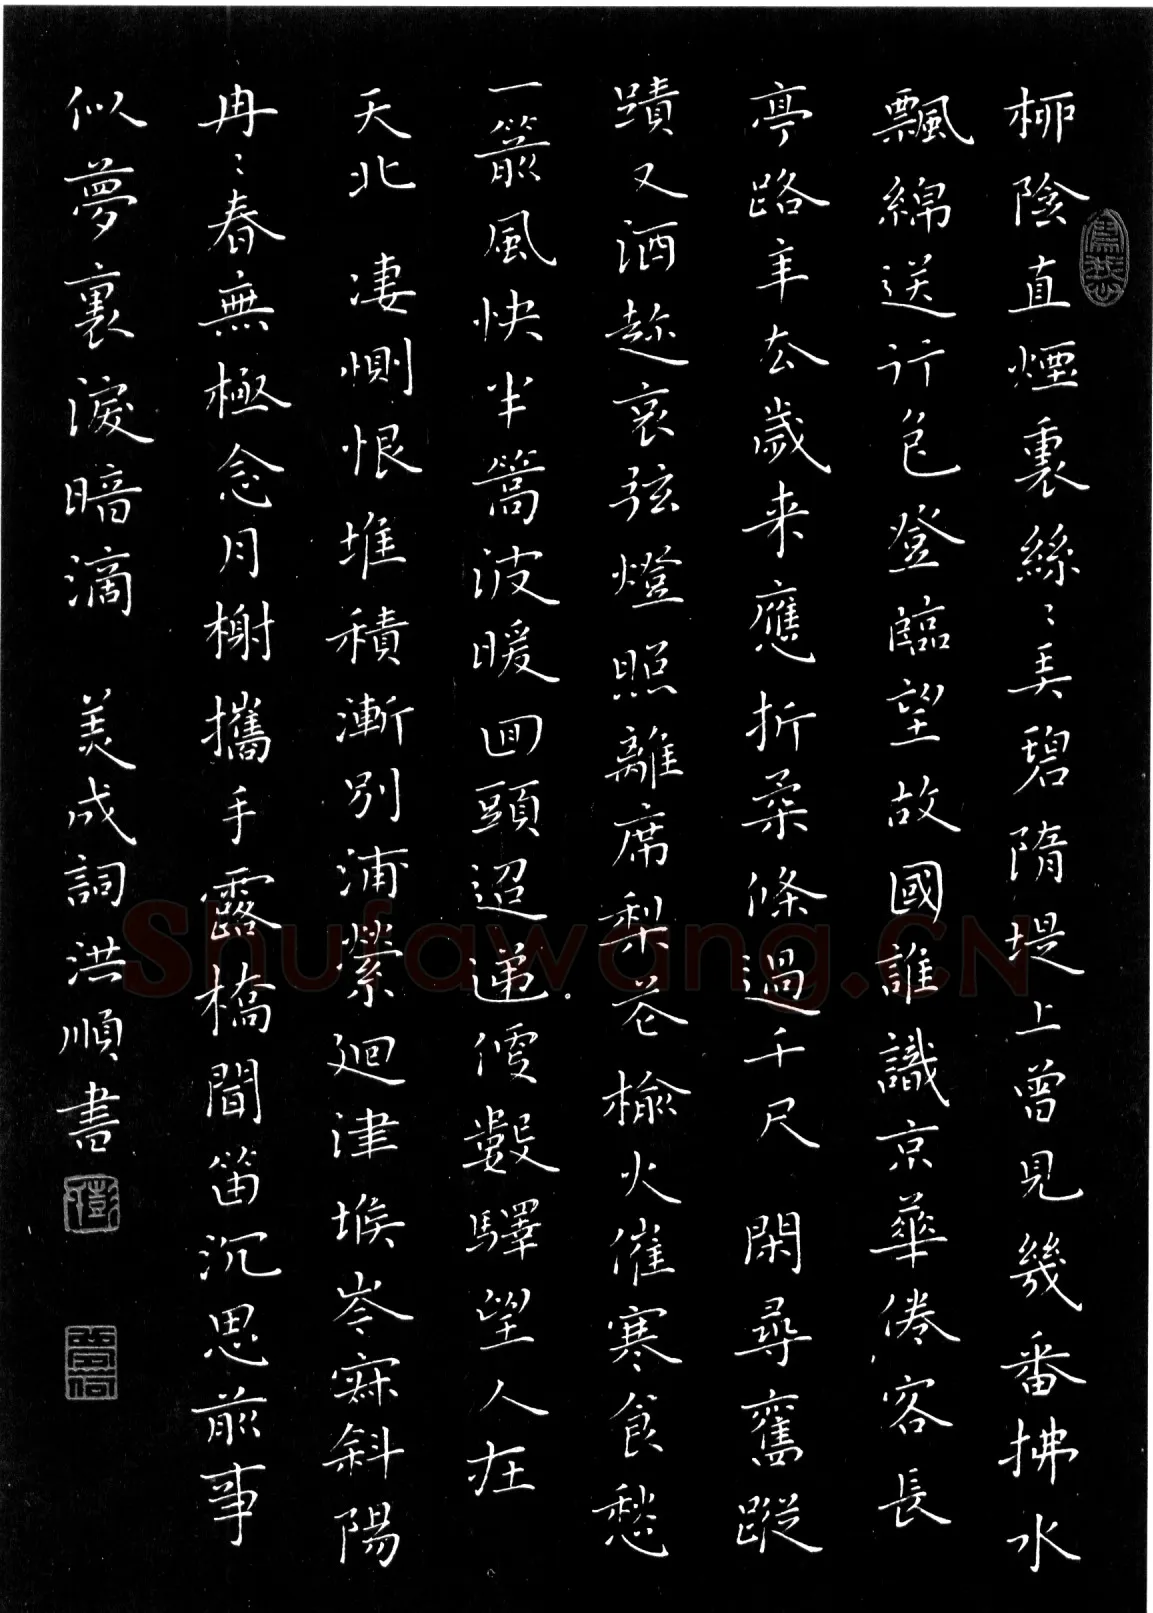 柳陰直煙裏絲〻弄碧隋堤上曾見幾番拂水
飄綿送行色登臨望故國誰識京華倦客長
亭路年去歲来應折柔條過千尺 閑尋舊蹤
蹟又酒趂哀弦燈照離席梨花榆火催寒食愁
一箭風快半篙波暖回頭迢遞便數驛望人在
天北 淒惻恨堆積漸別浦縈迴津堠岑寂斜陽
冉〻春無極念月榭攜手露橋聞笛沉思前事
似夢裏淚暗滴 美成詞洪順書
Shufawang.CN